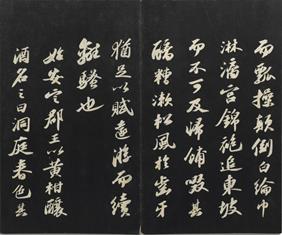 而瓢操顛倒白綸巾
淋漓宮錦袍追東坡
而不可及歸餔歠其
醨糟漱松風於齒牙
猶足以賦遠游而續
離騷也
始安定郡王以黃柑釀
酒名之曰洞庭春色其